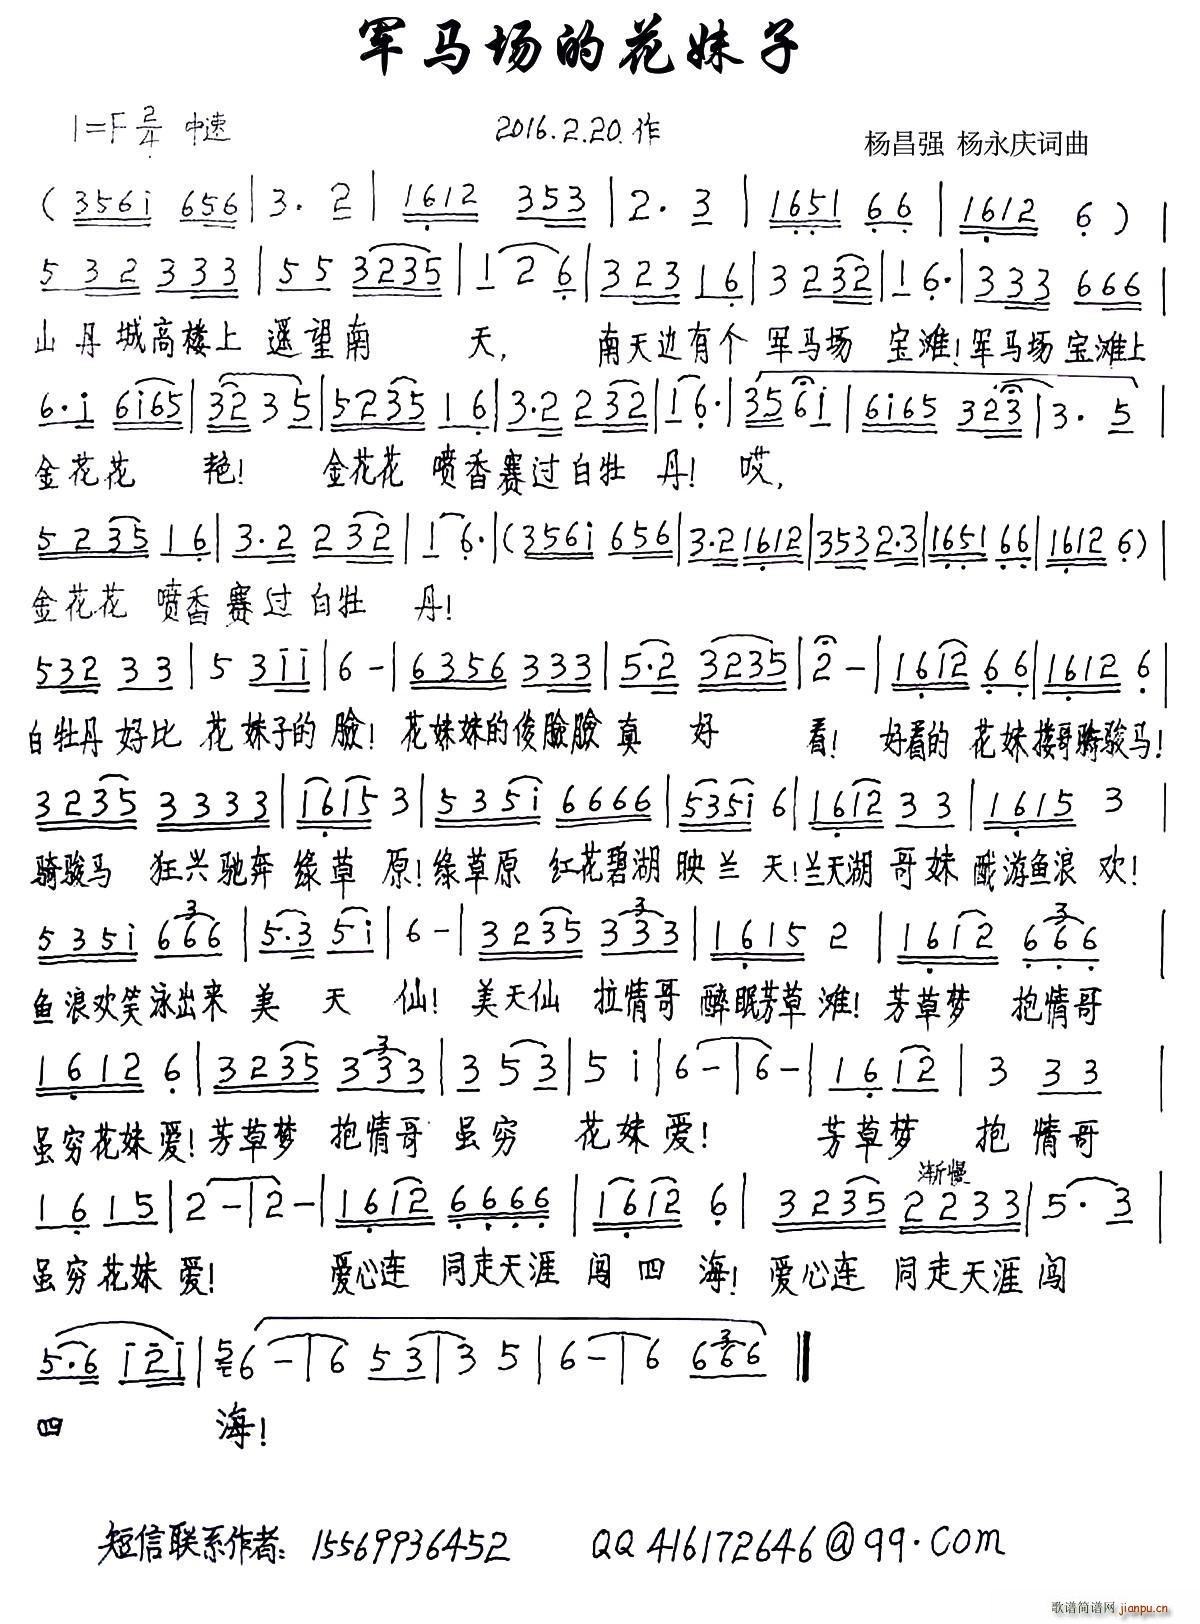 军马场的花妹子
1=F 2/4 中速 2016.2.20.作 杨昌强 杨永庆词曲
( 3561 656 | 3. 2 | 1612 353 | 2. 3 | 1651 66 | 1612 6 ) |
532 333 | 55 3235 | 1 2 6 | 323 16 | 3 232 | 1 6. | 333 666 |
山丹城高楼上 遥望南 天, 南天边有个 军马场 宝滩! 军马场宝滩上
6.i 6i65 | 3235 | 5235 16 | 3.2 232 | 1 6. | 356i | 6i65 323 | 3. 5 |
金花花 艳! 金花花 喷香赛过白牡 丹! 哎,
5235 16 | 3.2 232 | 1 6. | (356i 656 | 3.2 1612 | 353 2.3 | 1651 66 | 1612 6) |
金花花 喷香赛过白牡 丹!
532 33 | 5 3ii | 6 - | 6356 333 | 5.2 3235 | 2 - | 1612 66 | 1612 6 |
白牡丹好比 花妹子的 脸! 花妹妹的俊脸脸真 好 看! 好看的 花妹搂哥骑骏马!
3235 3333 | 1615 3 | 535i 6666 | 535i 6 | 1612 33 | 1615 3 |
骑骏马 狂兴驰奔 绿草 原! 绿草原 红花碧湖映兰 天! 兰天湖 哥妹 戏游鱼浪 欢!
535i 666 | 5.3 5i | 6 - | 3235 333 | 1615 2 | 1612 666 |
鱼浪欢笑泳出来 美 天 仙! 美天仙 拉情哥 醉眠芳草 滩! 芳草梦 抱情哥
1612 6 | 3235 333 | 3 5 3 | 5 i | 6 - | 6 - | 16 12 | 3 33 |
虽穷花妹 爱! 芳草梦 抱情哥 虽穷 花妹 爱! 芳草梦 抱 情哥
渐慢
16 15 | 2 - | 2 - | 1612 6666 | 1612 6 | 3235 2233 | 5. 3 |
虽穷 花妹 爱! 爱心连 同走天涯 闯 四 海! 爱心连 同走天涯 闯
5.6 i2i | 5 6 - | 6 53 | 3 5 | 6 - | 6 666 ‖
四 海!
短信联系作者: 15569936452 QQ416172646@qq.com
歌谱简谱网
jianpu.cn